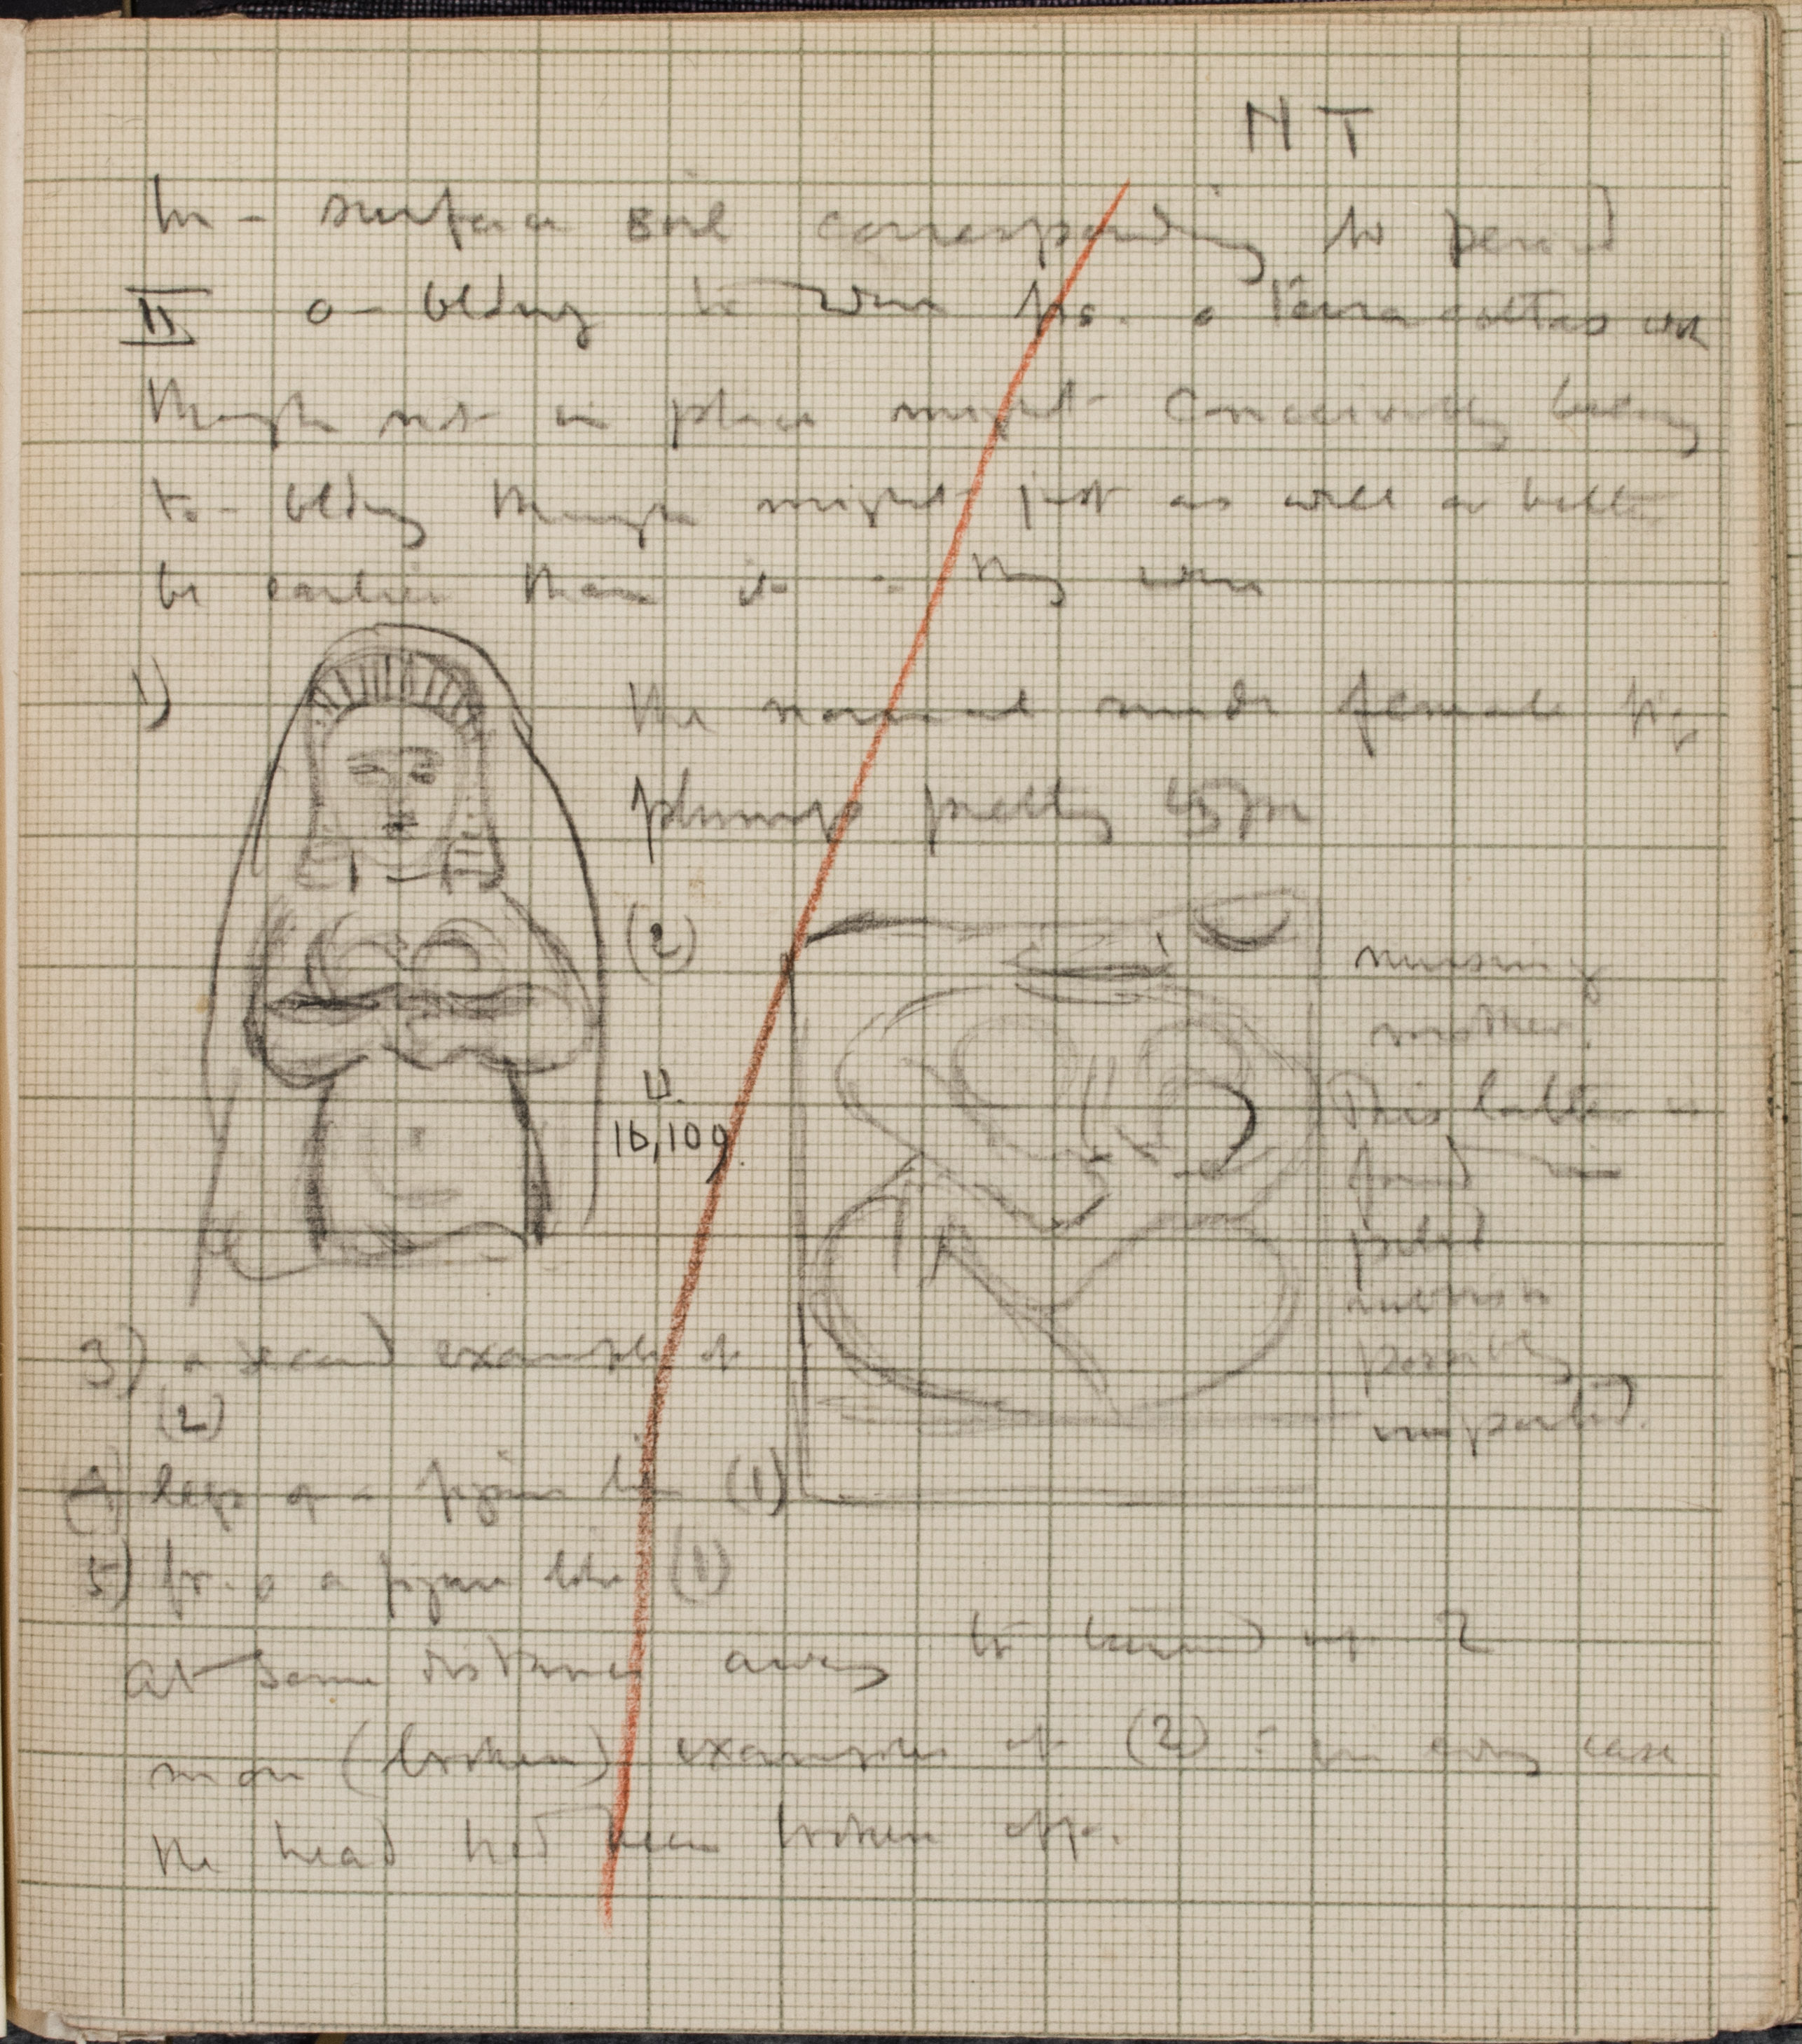 NT
In - surface soil corresponding to period
II o- bldng tr were frs. o terracottas wh
though not in place might conceivably belong
to - bldng though might just as well or better
be earlier than it : they were
1) the normal nude female fig.
plump pretty type
(2)
nursing
mother.
This latter
found
period
possibly
imported.
U.
16,109.
3) a second example of
(2)
(4) legs of a figure like (1)
5) fr. o a figure like (1)
At some distance away tr turned up 2
more (broken) examples of (2) : in every case
the head had been broken off.